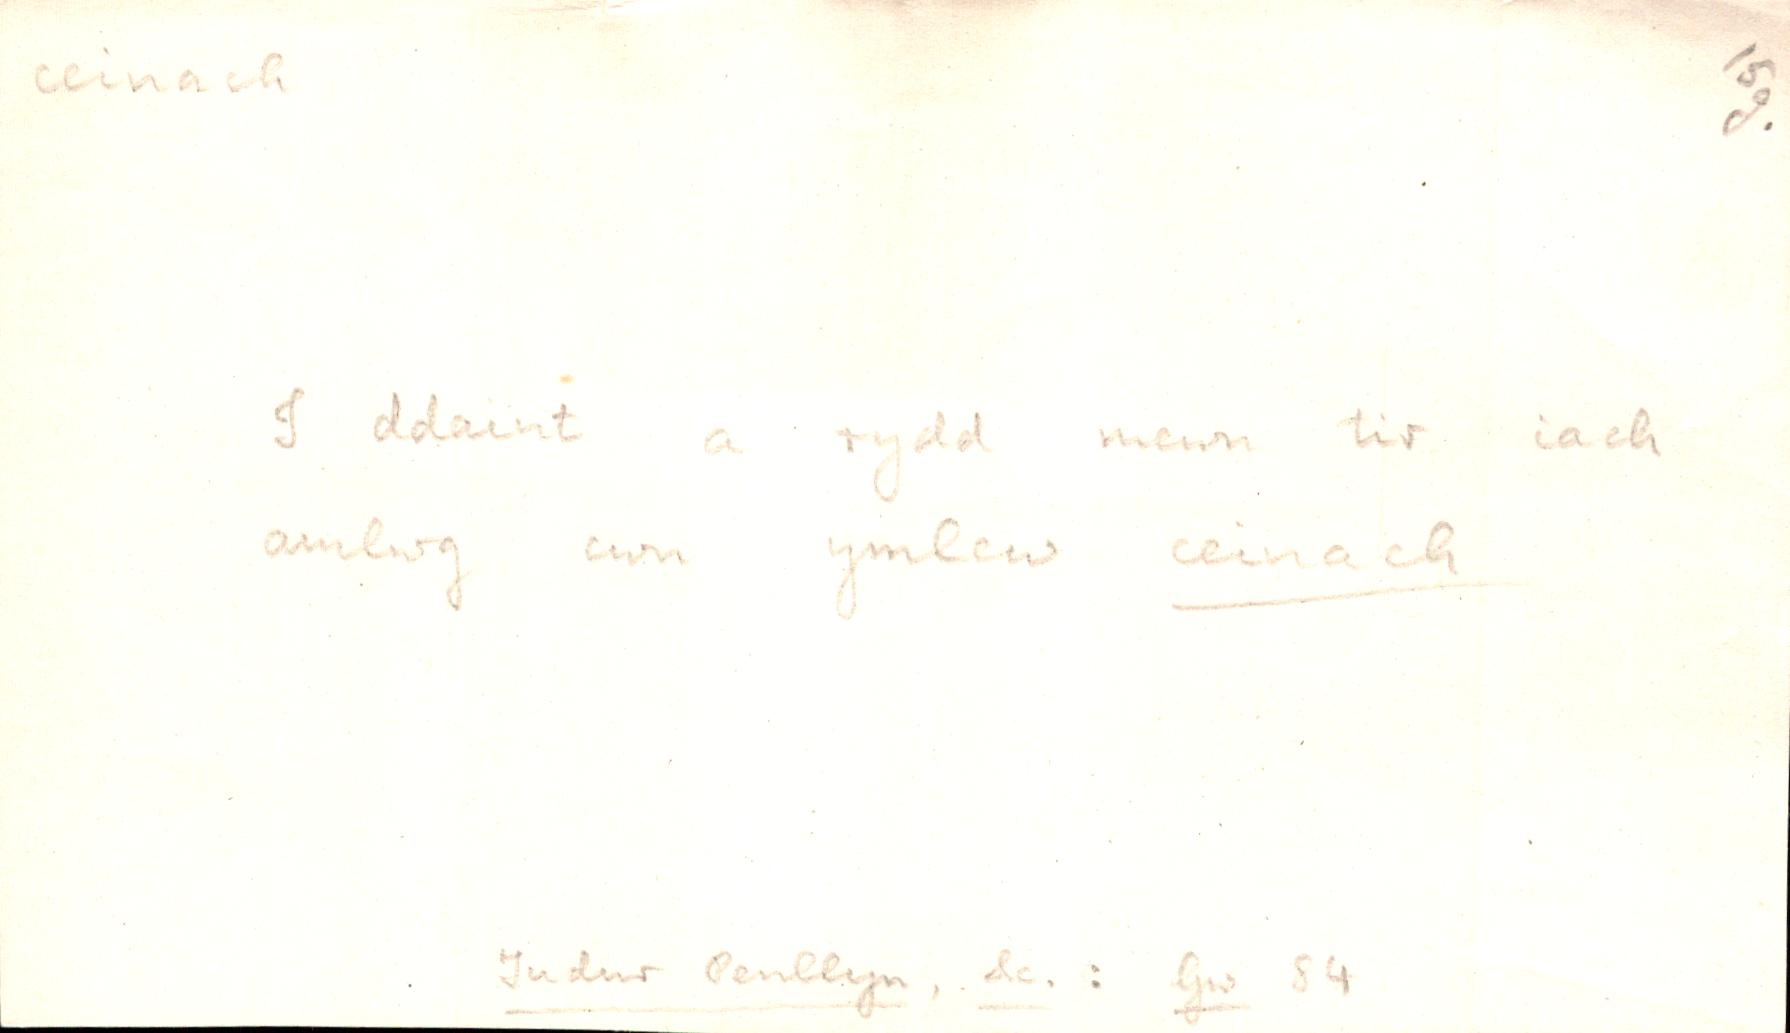 ceinach
15g.
I ddaint a rydd mewn tir iach
amlwg cwn ymlew ceinach
Tudur Penllyn, &c.: Gw 84